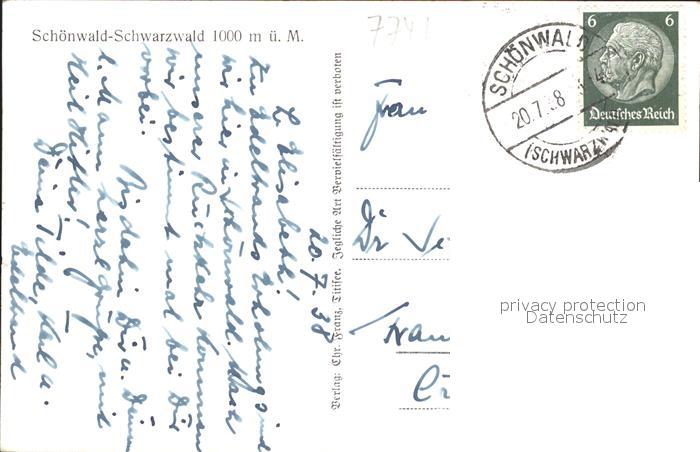 Schönwald-Schwarzwald 1000 m ü. M.
7741
20.7.38
L. Elisabeth!
Zu Edeltrauds Erholung sind
wir hier in Schönwald. Nach
unserer Rückkehr kommen
wir bestimmt mal bei Dir
vorbei.
Bis dahin Dir u. Deinem
l. Mann herzl. Grüße, und
Heil Hitler!
Deine Tilde, Karl u.
Edeltraud
Verlag: Chr. Franz, Titisee. Jegliche Art Vervielfältigung ist verboten
Frau
Dr
SCHÖNWALD
20.7.38
(SCHWARZWA
6 6
Deutsches Reich
privacy protection
Datenschutz